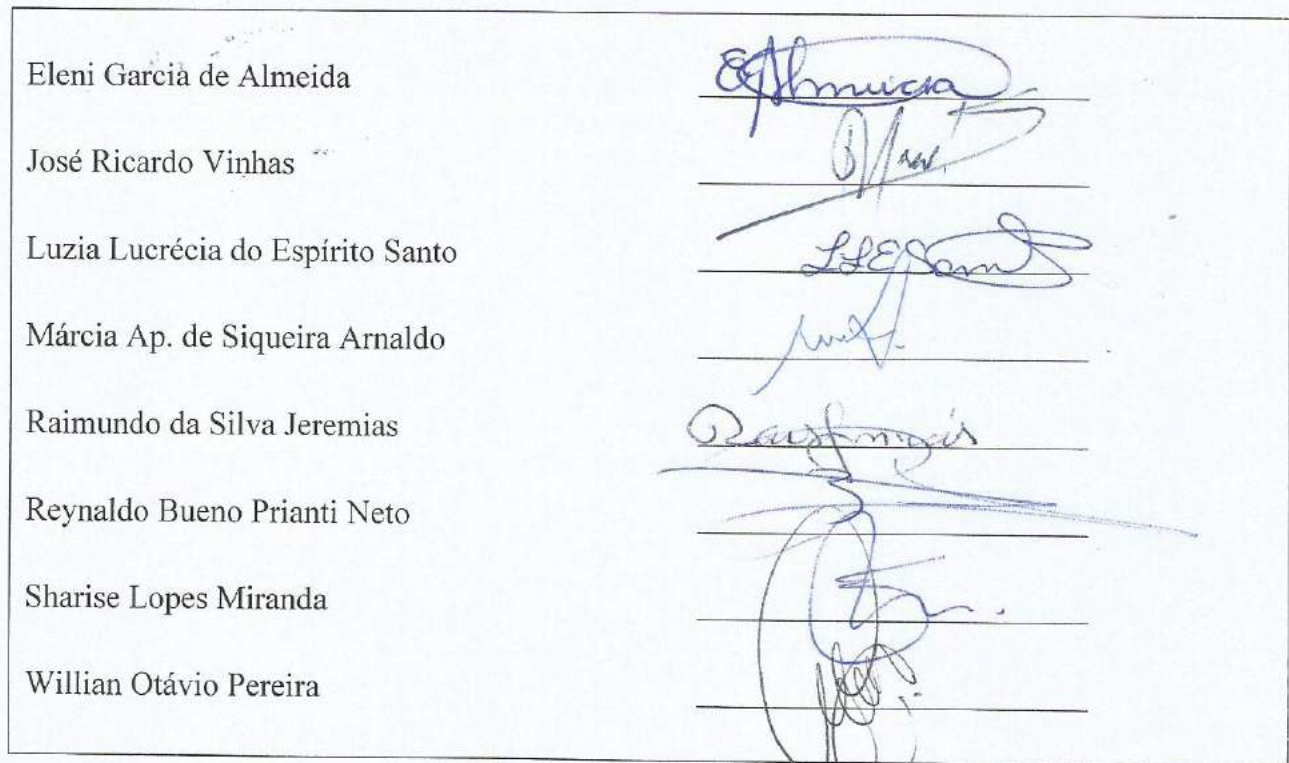 Eleni Garcia de Almeida
José Ricardo Vinhas
Luzia Lucrécia do Espírito Santo
LLESanto
Márcia Ap. de Siqueira Arnaldo
Raimundo da Silva Jeremias
Reynaldo Bueno Prianti Neto
Sharise Lopes Miranda
Willian Otávio Pereira